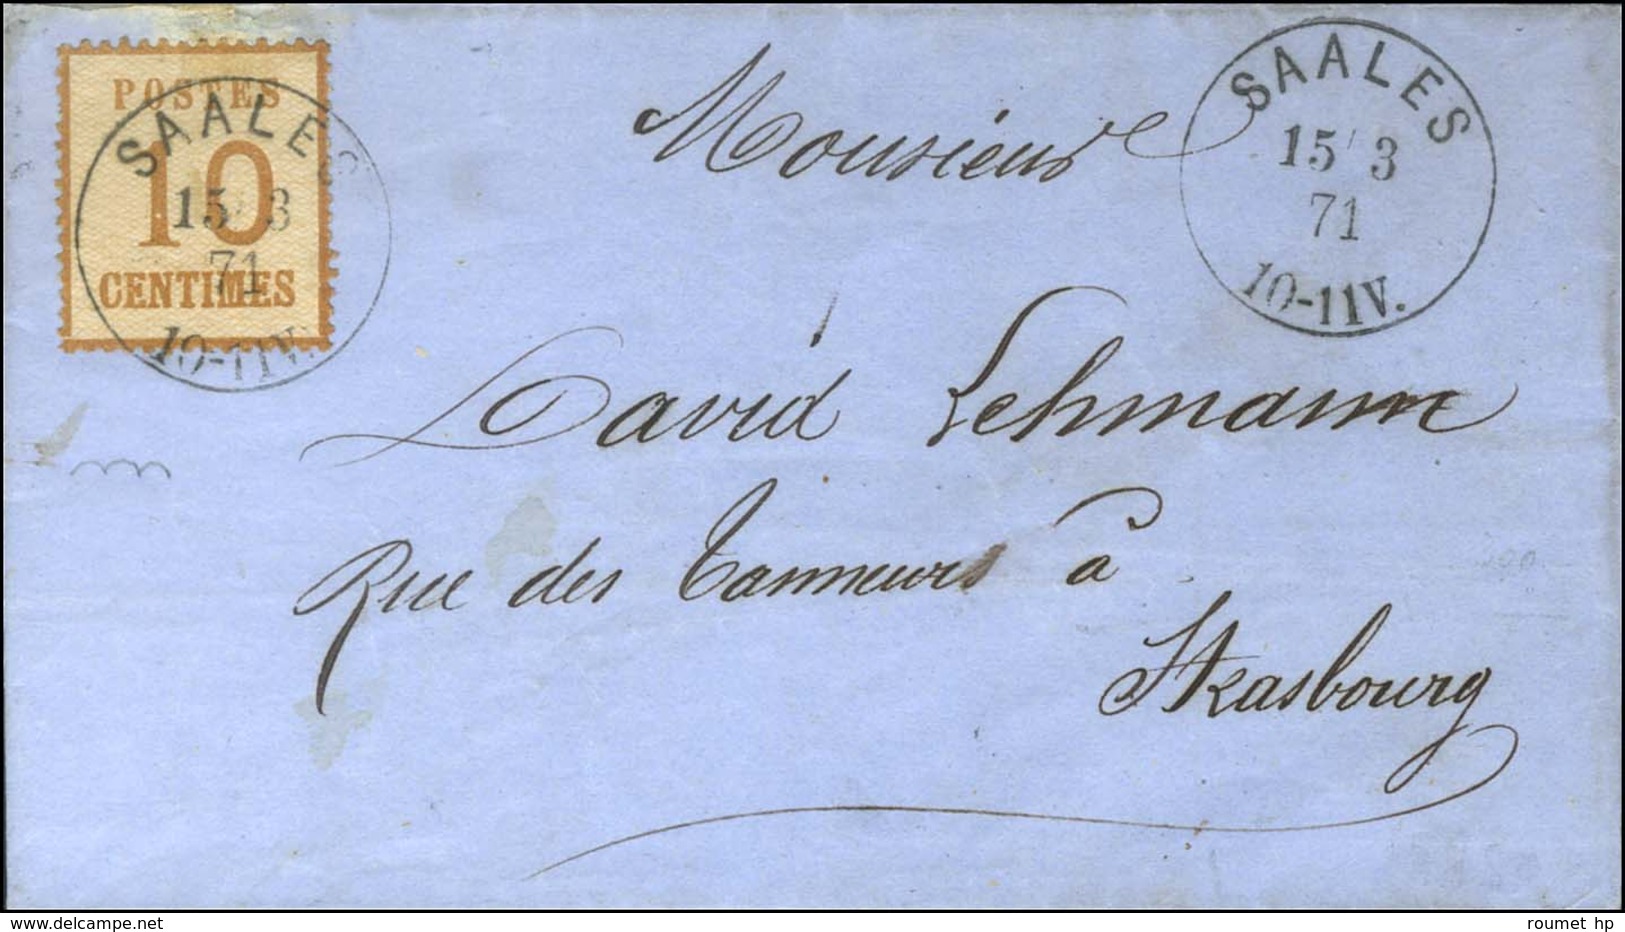 POSTES
10
CENTIMES
SAALES
15 3
71
10-11V.
SAALES
15 3
71
10-11V.
Monsieur
David Lehmann
Rue des Tanneurs à
Strasbourg
www.delcampe.net
roumet hp